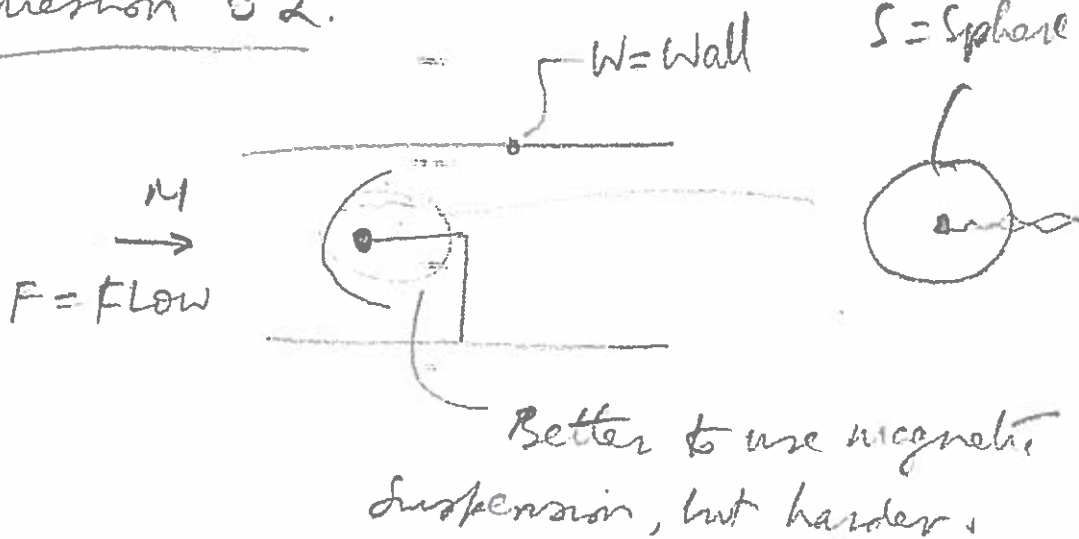 Question 02.
W = Wall
S = Sphere
M
F = FLOW
Better to use magnetic
Suspension, but harder.